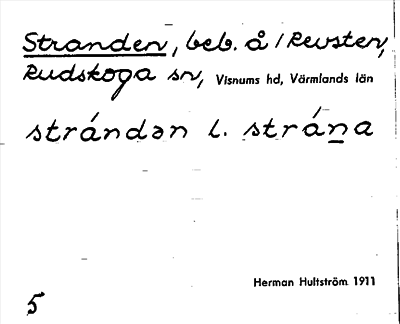 Stranden, beb. å /Revsten,
Rudskoga sn, Visnums hd, Värmlands län
strándən l. strána̲
Herman Hultström 1911
5